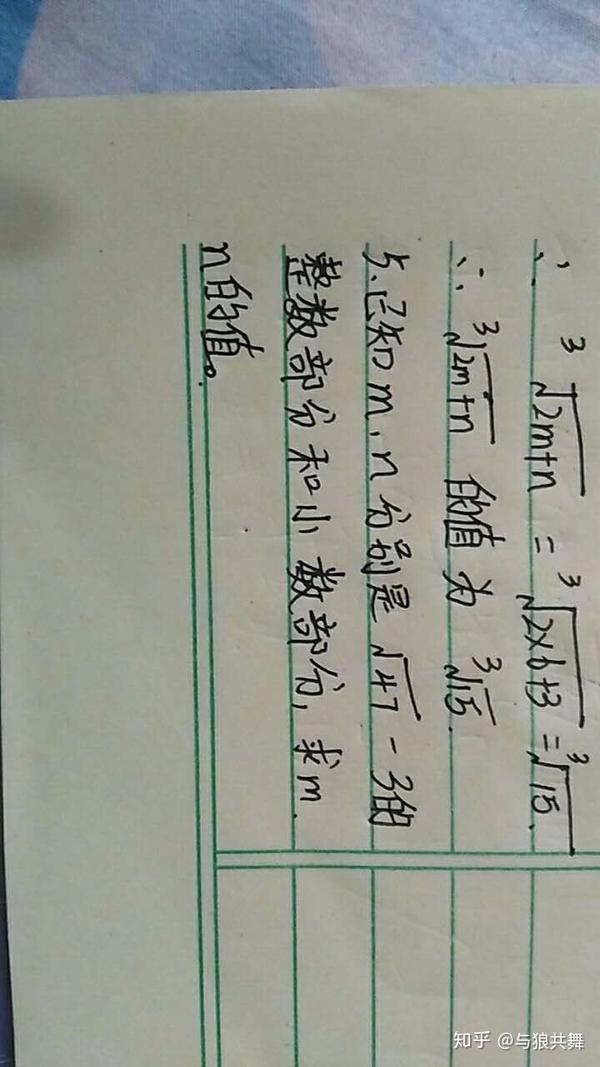 ∴ ³√2m+n = ³√2×6+3 = ³√15.
∴ ³√2m+n 的值为 ³√15.
5.已知m、n分别是√47-3的
整数部分和小数部分,求m、
n的值。
知乎 @与狼共舞